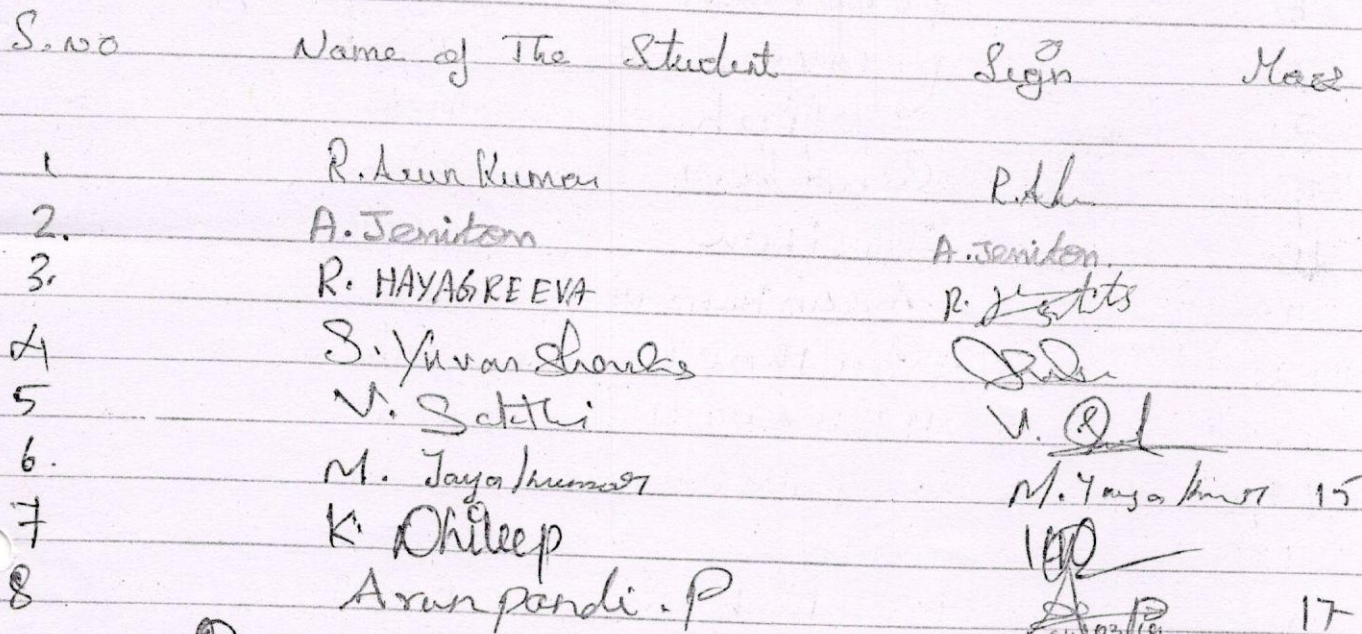 S.no Name of The Student Sign
1 R. Arun Kumar
2. A. Jeniton A. Jeniton.
3. R. HAYAGREEVA R.
4 S. Yuvan
5 V. Sakthi V.
6. M. Jayakumar M. Jayakumar 15
7 K. Dhileep
8 Arunpandi. P 17